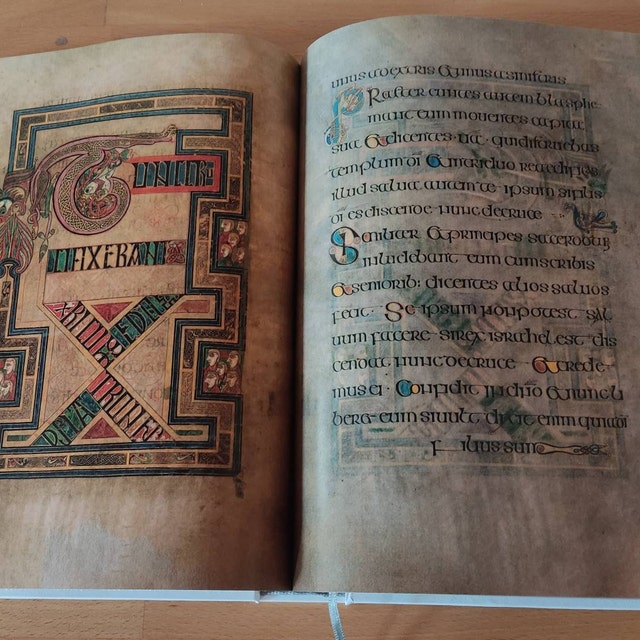 TUNC CRU
CIFIXERANT
XPI CUM EO DU
OS LATRONES
unus a dextris & unus a sinistris
Praetereuntes autem blasphe
mant eum mouentes capita
sua & dicentes · ua · qui
templum di & in triduo reaedificas
illud salua autem te · ipsum si filius
di es discende · nunc de cruce
Similiter & principes sacerdotu
inludebant eum cum scribis
& senioribus dicentes alios saluos
fecit · Se ipsum non potest sal
uum facere · si rex israhel est dis
cendat nunc de cruce & crede
mus ei · Confidit in dno & nunc li
beret eum si uult dixit enim quia di
filius sum